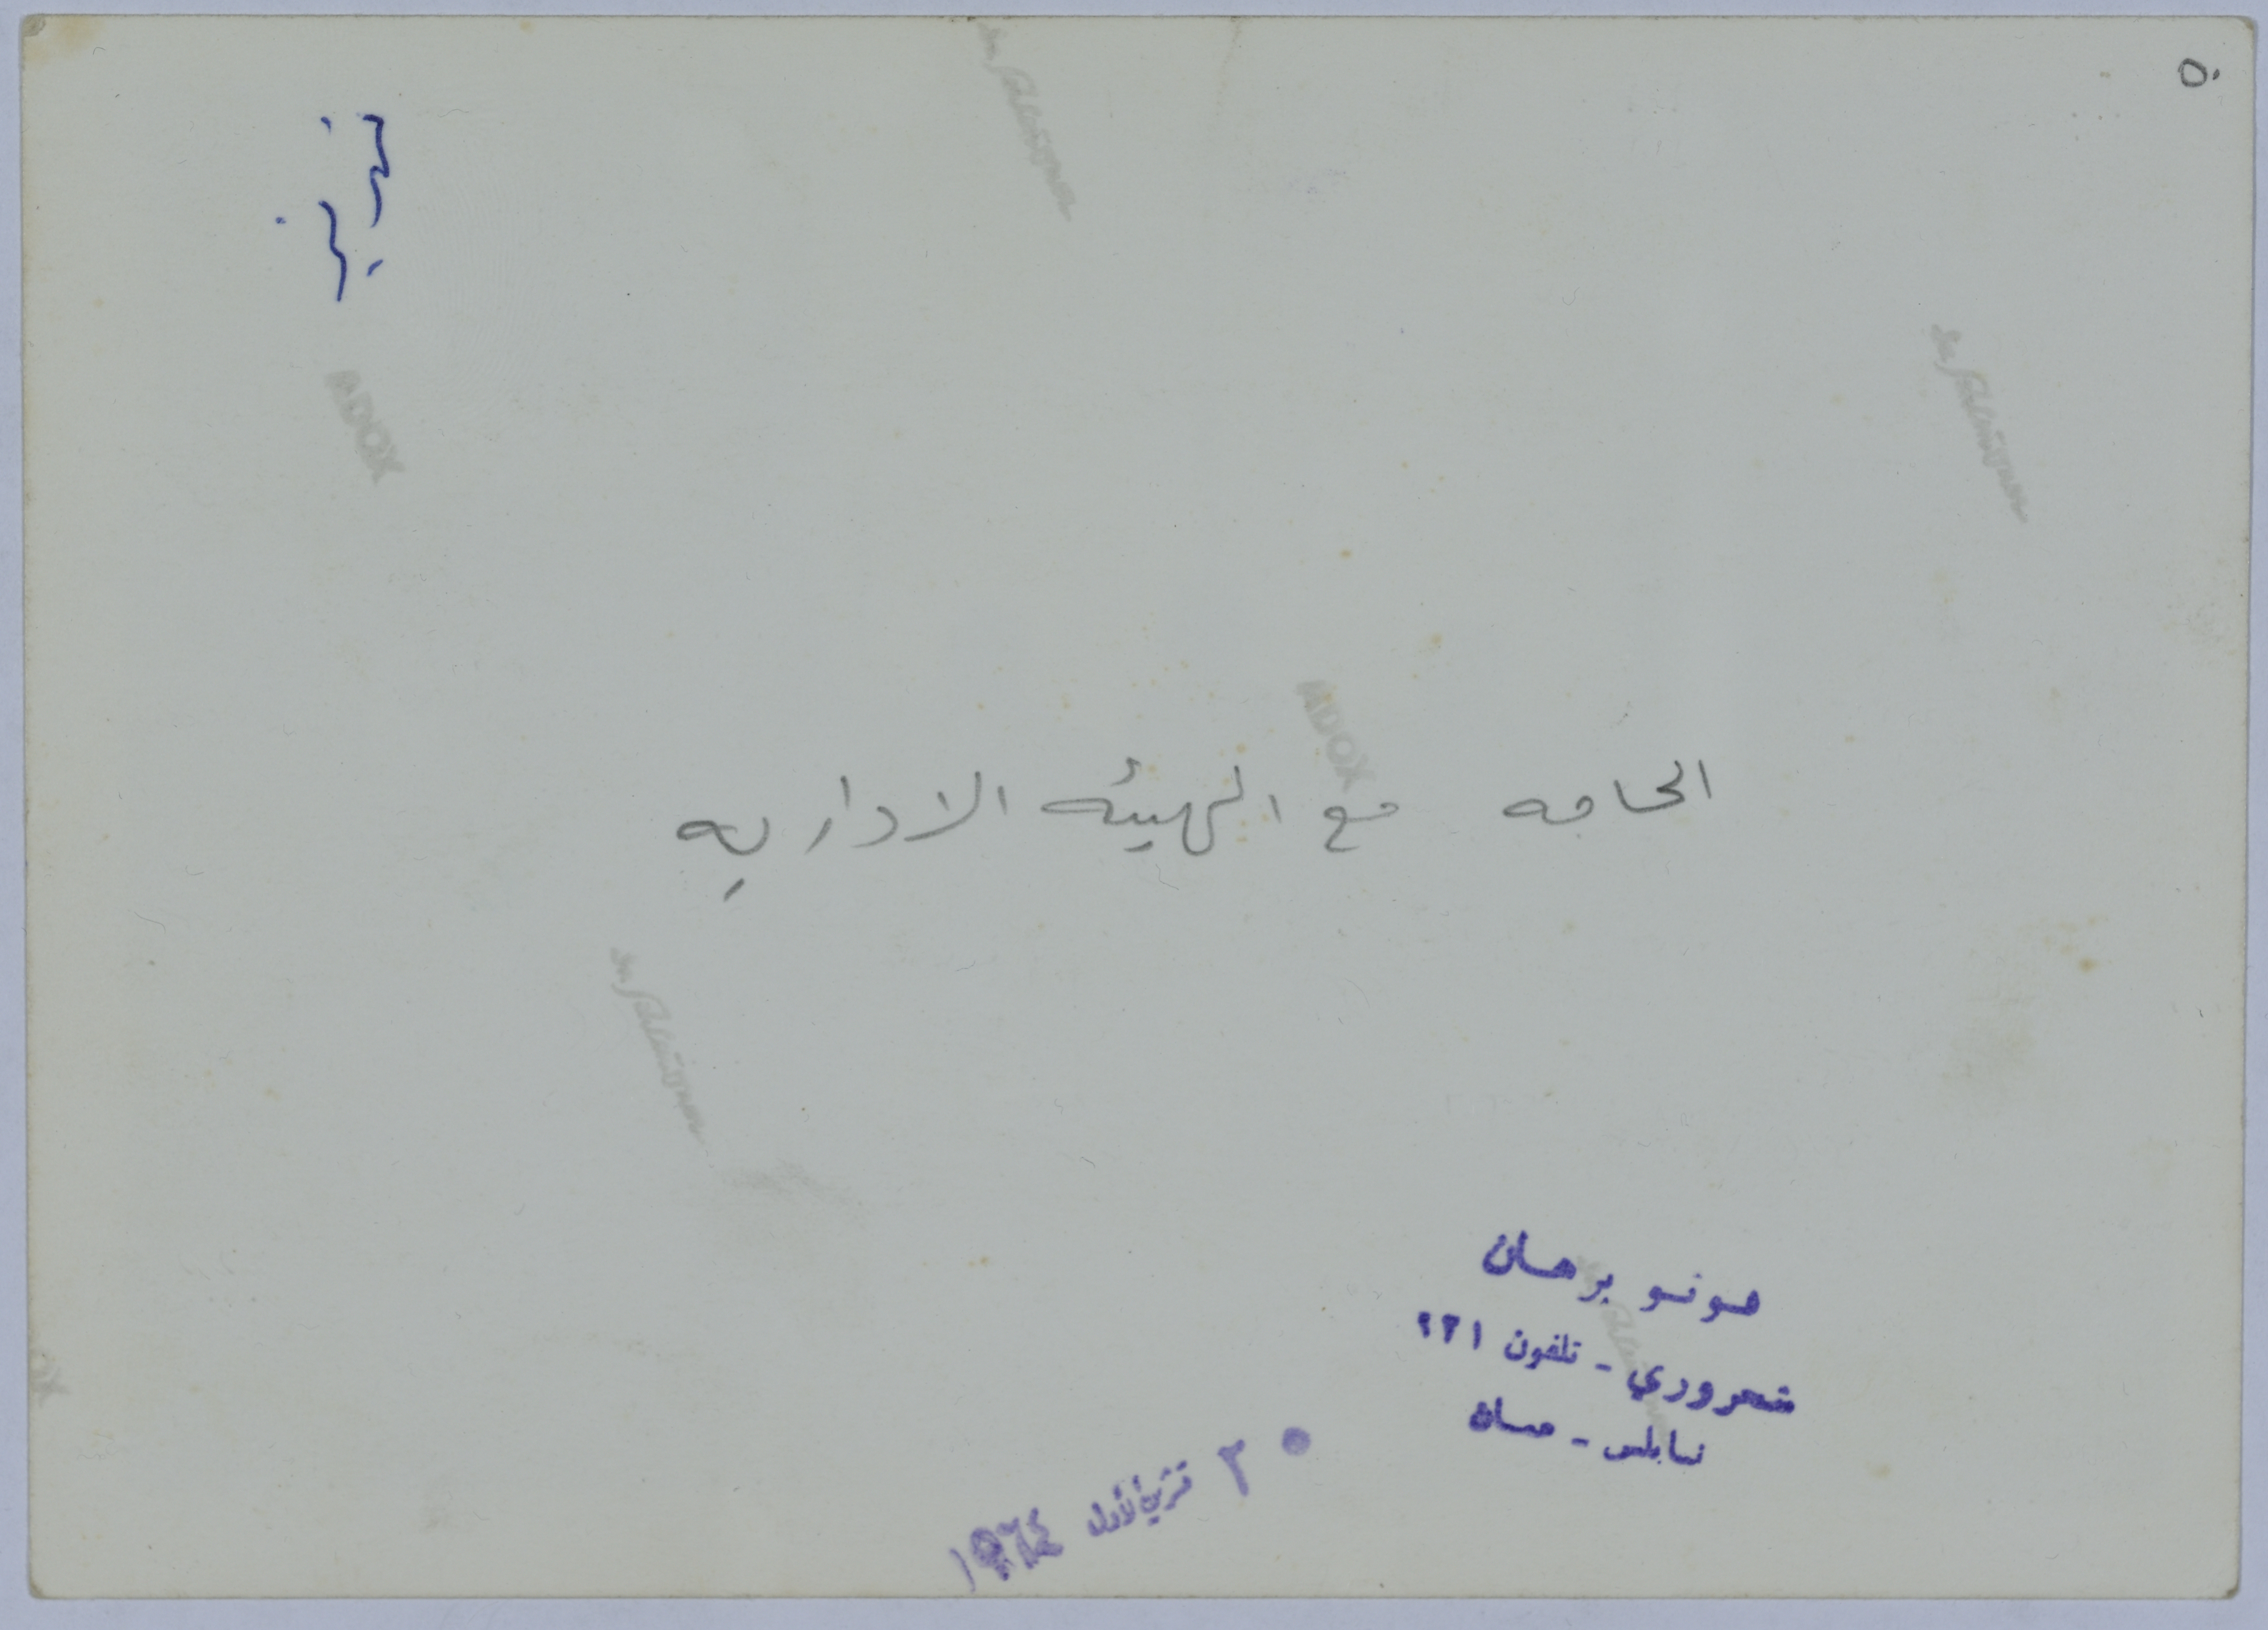 ٥٠
الحاجه مع الهيئه الاداريه
فوتو برهان
شعروري - تلفون ٢٢١
نابلس - ميسان
٢٠ تشرين الأول ١٩٦٤
ADOX
ADOX